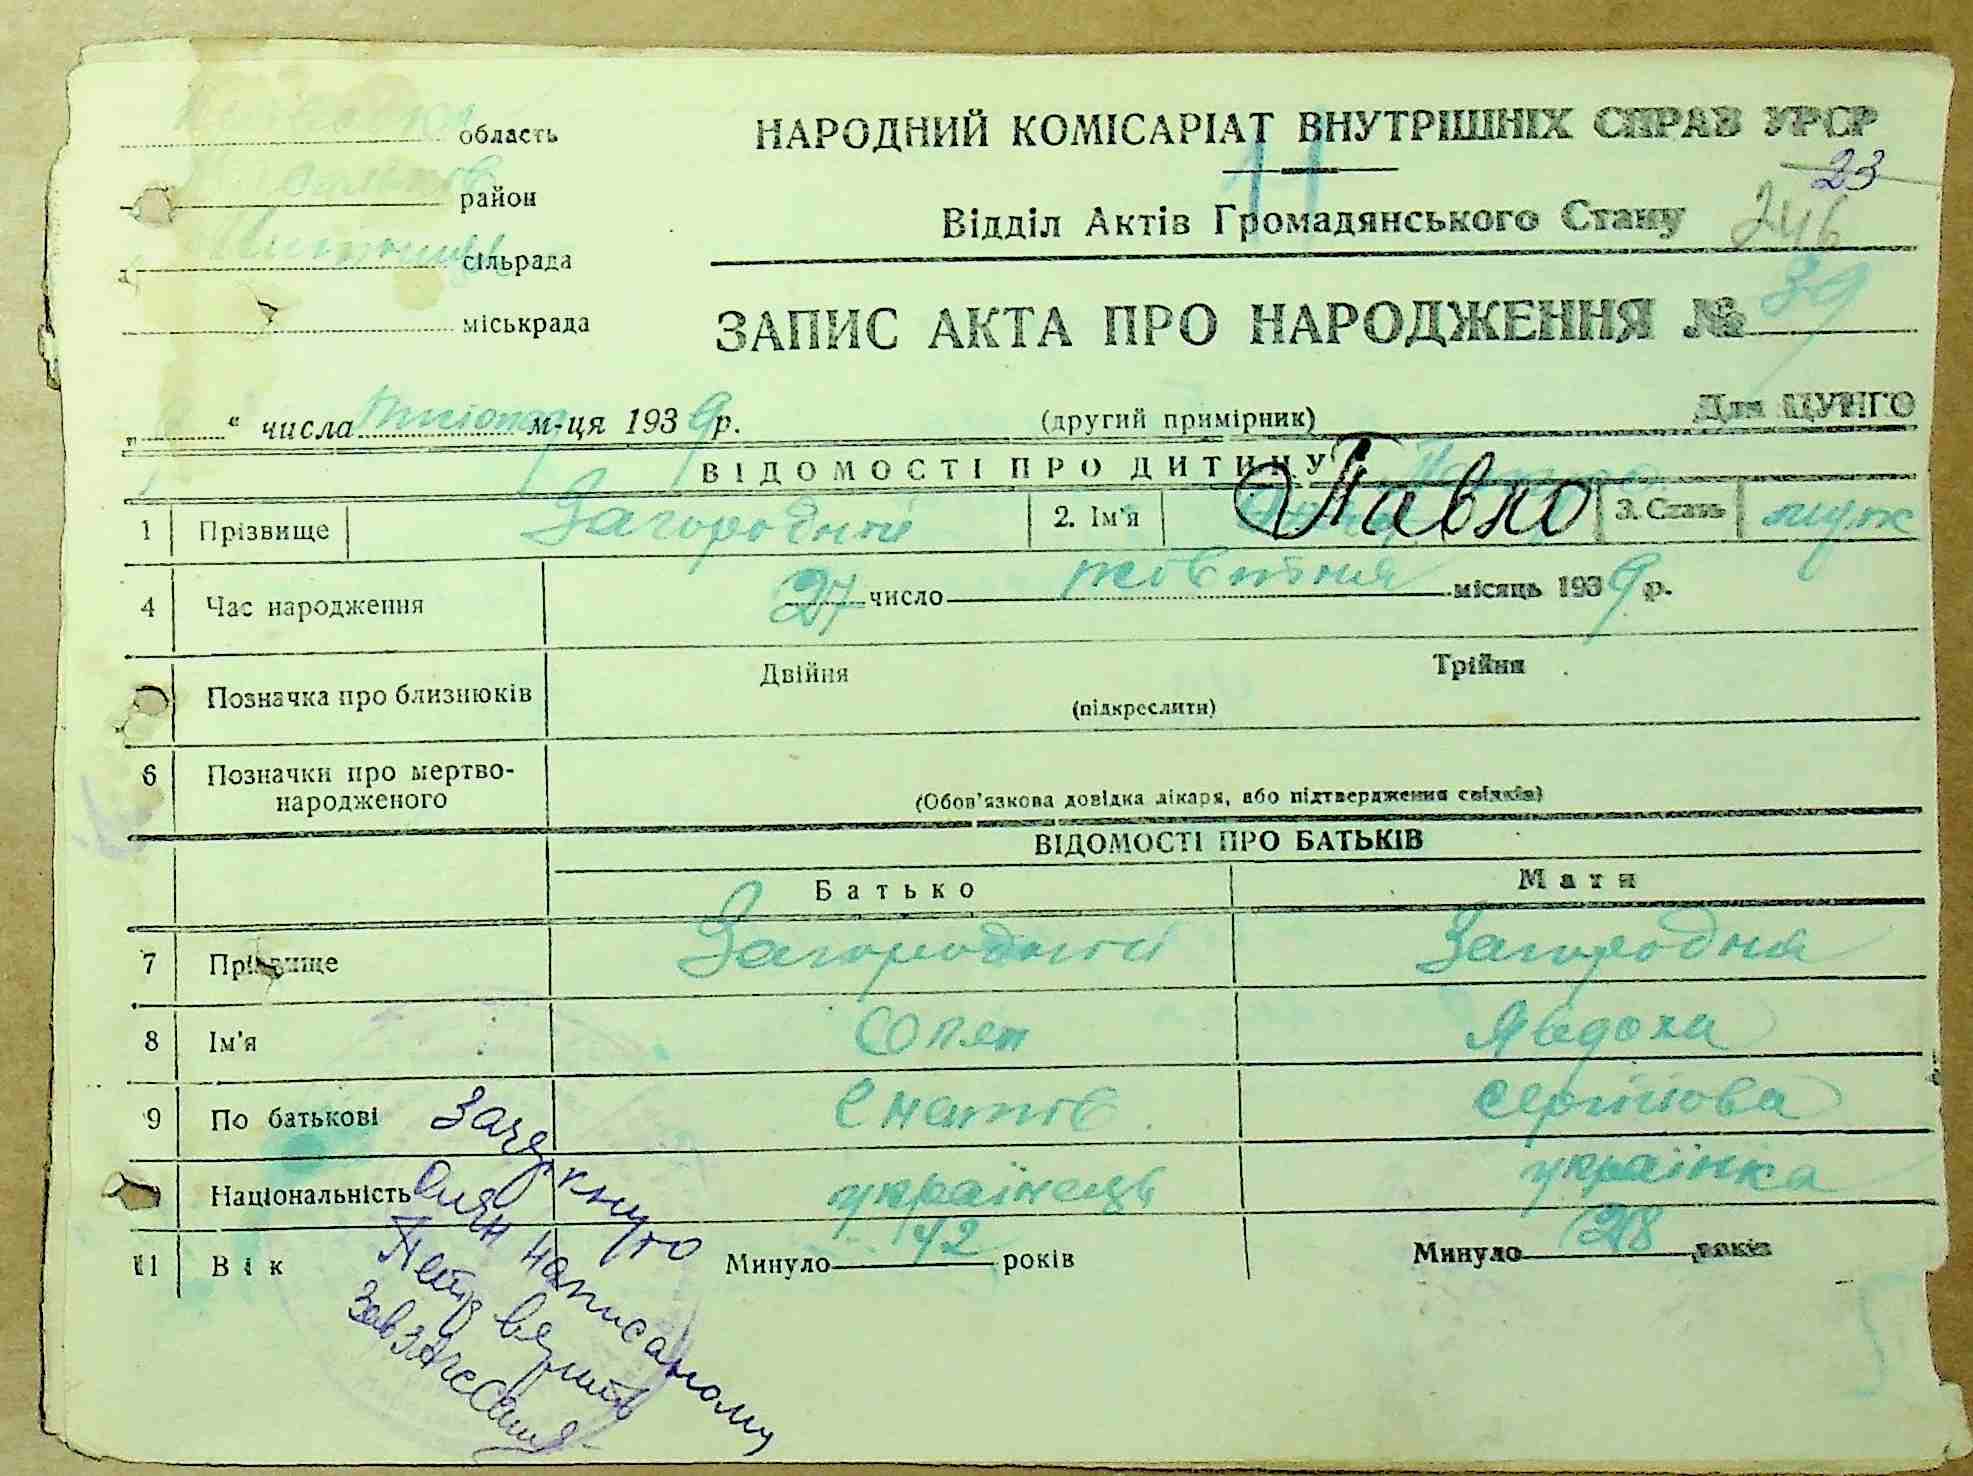 область
НАРОДНИЙ КОМІСАРІАТ ВНУТРІШНІХ СПРАВ УРСР
23
район
Відділ Актів Громадянського Стану 246
сільрада
міськрада
ЗАПИС АКТА ПРО НАРОДЖЕННЯ № 39
„ “ числа м-ця 1939 р.
(другий примірник)
Для ЦУНГО
ВІДОМОСТІ ПРО ДИТИНУ
1 Прізвище Загородний 2. Ім'я Павло 3. Стать муж
4 Час народження 27 число жовтня місяць 1939 р.
Позначка про близнюків Двійня Трійня
(підкреслити)
6 Позначки про мертво-
народженого
(Обов'язкова довідка лікаря, або підтвердження свідків)
ВІДОМОСТІ ПРО БАТЬКІВ
Батько Мати
7 Прізвище Загородний Загородня
8 Ім'я Явдоха
9 По батькові
Національність українець українка
11 Вік Минуло 42 років Минуло 28 років
Закреслену
написаному
вірить